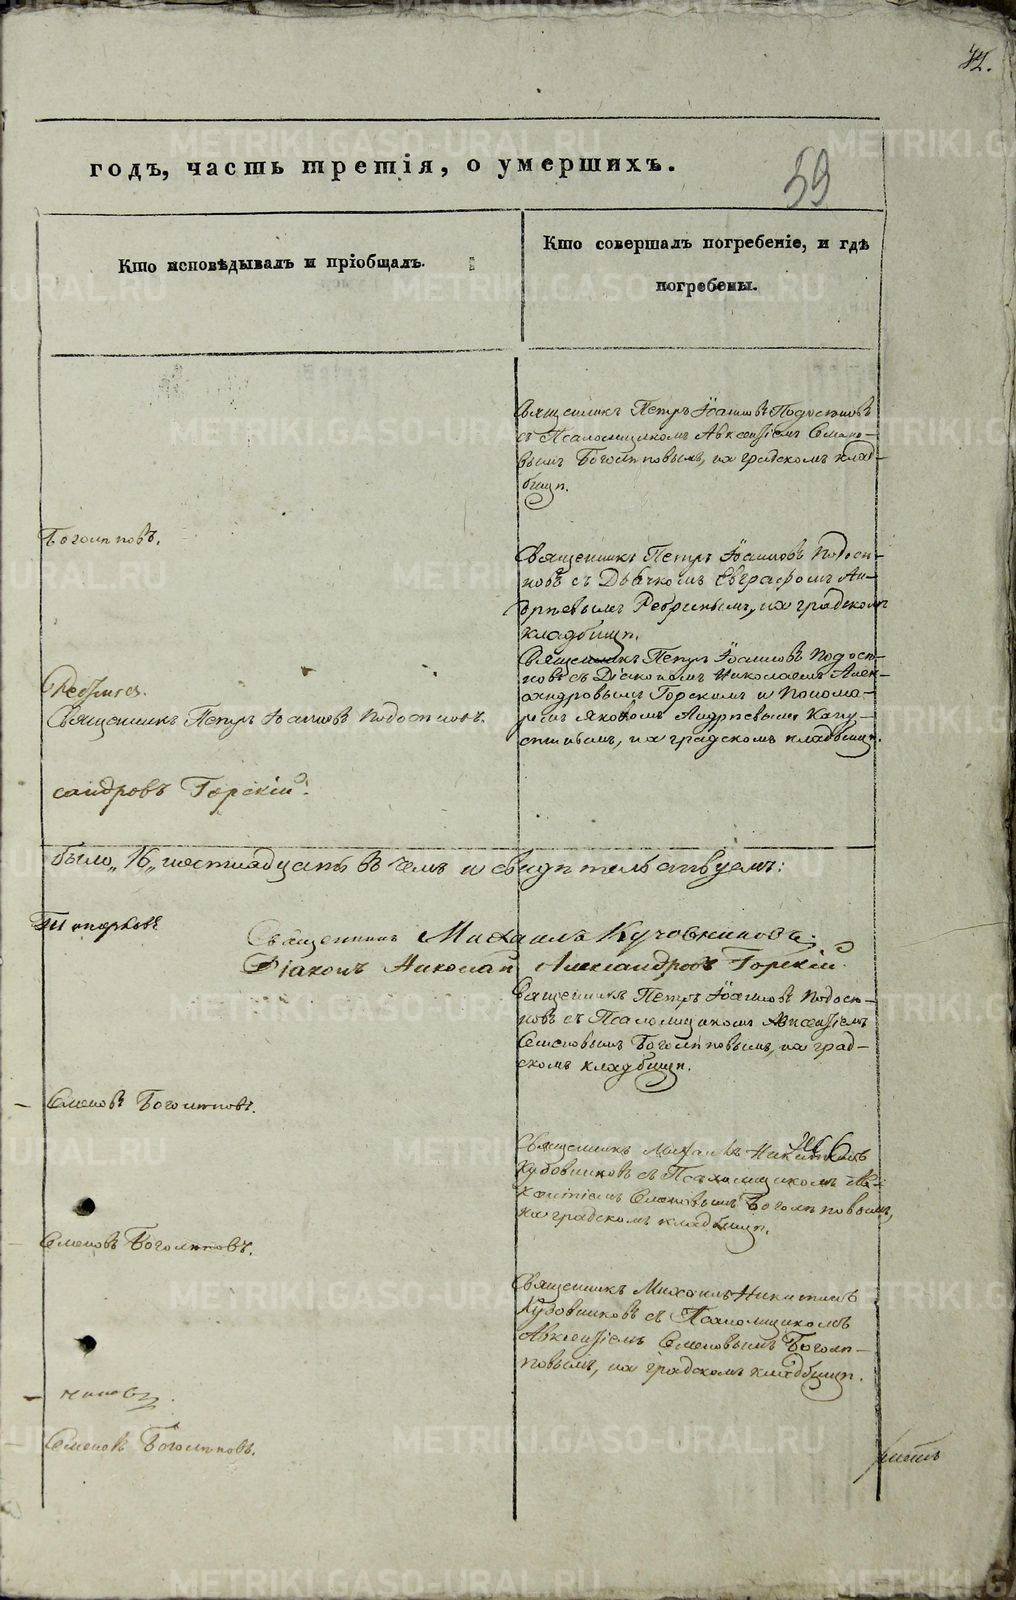 42.
59
годъ, часть третія, о умершихъ.
Кто исповѣдывалъ и пріобщалъ.
Кто совершалъ погребеніе, и гдѣ
погребены.
Священникъ Петръ Іоанновъ Подосеновъ
съ Псаломщикомъ Авксентіемъ Семено-
вымъ Боголѣповымъ, на градскомъ клад-
бищѣ.
Боголѣповъ.
Священникъ Петръ Іоанновъ Подосе-
новъ съ Дьячкомъ Евграфомъ Ан-
дрѣевымъ Ребринымъ, на градскомъ
кладбищѣ.
Священникъ Петръ Іоанновъ Подосе-
новъ съ Діакономъ Николаемъ Алек-
сандровымъ Горскимъ и Понома-
ремъ Яковомъ Андрѣевымъ Капу-
стинымъ, на градскомъ кладбищѣ.
Ребринъ.
Священникъ Петръ Іоанновъ Подосеновъ.
сандровъ Горскій.
было „16„ шестнадцать въ чемъ и свидѣтельствуемъ:
Топорковъ
Священникъ Михаилъ Кудовниковъ.
Діаконъ Николай Александровъ Горскій.
Священникъ Петръ Іоанновъ Подосе-
новъ съ Псаломщикомъ Авксентіемъ
Семеновымъ Боголѣповымъ, на град-
скомъ кладбищѣ.
Семеновъ Боголѣповъ.
Священникъ Михаилъ Никитинъ
Кудовниковъ съ Псаломщикомъ Ав-
ксентіемъ Семеновымъ Боголѣповымъ,
на градскомъ кладбищѣ.
Семеновъ Боголѣповъ.
Священникъ Михаилъ Никитинъ
Кудовниковъ съ Псаломщикомъ
Авксентіемъ Семеновымъ Боголѣ-
повымъ, на градскомъ кладбищѣ.
Семеновъ Боголѣповъ.
METRIKI.GASO-URAL.RU